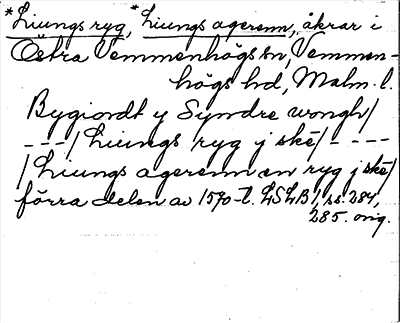 *Liungs ryg, *Liungs agerenn, åkrar i
Östra Vemmenhögs sn, Vemmen-
högs hd, Malm. l.
Bygiordt y Syndre wongh/
---/ Liungs ryg j skē/ - ---
/ Liungs agerenn en ryg j skē/
förra delen av 1570-t. LSLB 1, ss. 284,
285. orig.